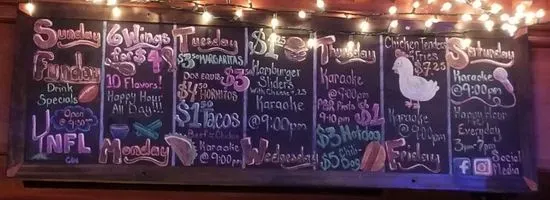 Sunday
Funday
Drink
Specials
Open
@ 9:30am
NFL
6 Wings
for $4
10 Flavors!
Happy Hour
All Day!
Monday
Tuesday
$3.50 MARGARITAS
DOS EQUIS $3.50
$4.50 HORNITOS
$1.50 TACOS
Beef or Chicken
Karaoke
@ 9:00pm
$1.25
Hamburger
Sliders
With Cheese +.25
Karaoke
@9:00pm
Wednesday
Thursday
Karaoke
@9:00pm
PBR Pints
9-10pm $1
$3 Hotdog
$5 Chili
Dog
Chicken Tenders
& Fries
$7.25
Karaoke
@9:00pm
Friday
Saturday
Karaoke
@9:00pm
Happy Hour
Everyday
3pm-7pm
Social
Media